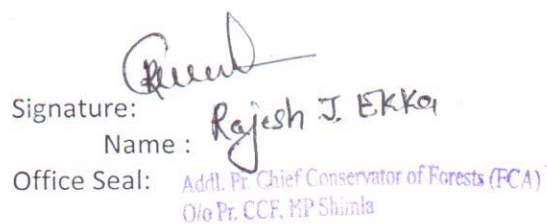 Signature:
Name : Rajesh J. Ekka
Office Seal: Addl. Pr. Chief Conservator of Forests (FCA)
O/o Pr. CCF, HP Shimla